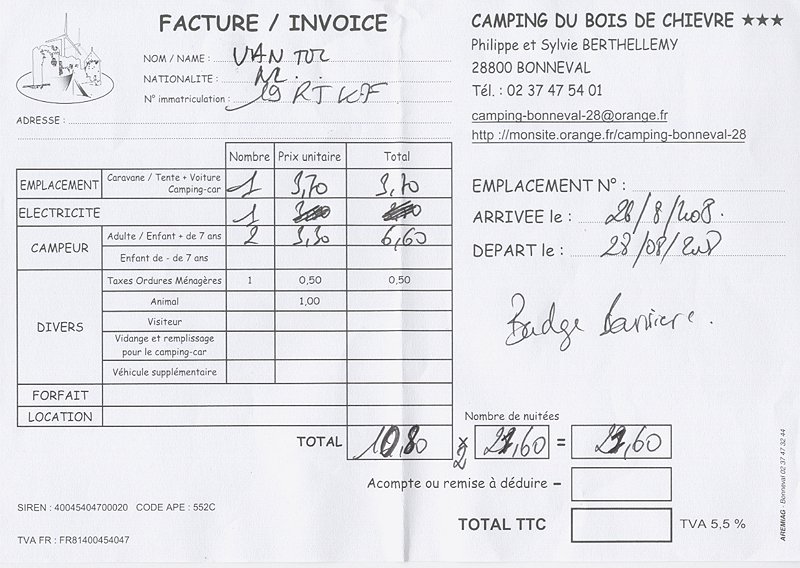 FACTURE / INVOICE
NOM / NAME : VAN TOL
NATIONALITE : NL
N° immatriculation : 19 RJ KF
ADRESSE :
CAMPING DU BOIS DE CHIEVRE ★★★
Philippe et Sylvie BERTHELLEMY
28800 BONNEVAL
Tél. : 02 37 47 54 01
camping-bonneval-28@orange.fr
http ://monsite.orange.fr/camping-bonneval-28
Nombre Prix unitaire Total
EMPLACEMENT Caravane / Tente + Voiture
Camping-car 1 3,70 3,70
ELECTRICITE 1
CAMPEUR Adulte / Enfant + de 7 ans 2 3,30 6,60
Enfant de - de 7 ans
DIVERS
Taxes Ordures Ménagères 1 0,50 0,50
Animal 1,00
Visiteur
Vidange et remplissage
pour le camping-car
Véhicule supplémentaire
FORFAIT
LOCATION
EMPLACEMENT N° :
ARRIVEE le : 26/8/2008.
DEPART le : 28/08/2008
Badge Barriere.
Nombre de nuitées
TOTAL 10,80 x 2 21,60 = 21,60
Acompte ou remise à déduire –
TOTAL TTC TVA 5,5 %
SIREN : 40045404700020 CODE APE : 552C
TVA FR : FR81400454047
AREMIAG - Bonneval 02 37 47 32 44